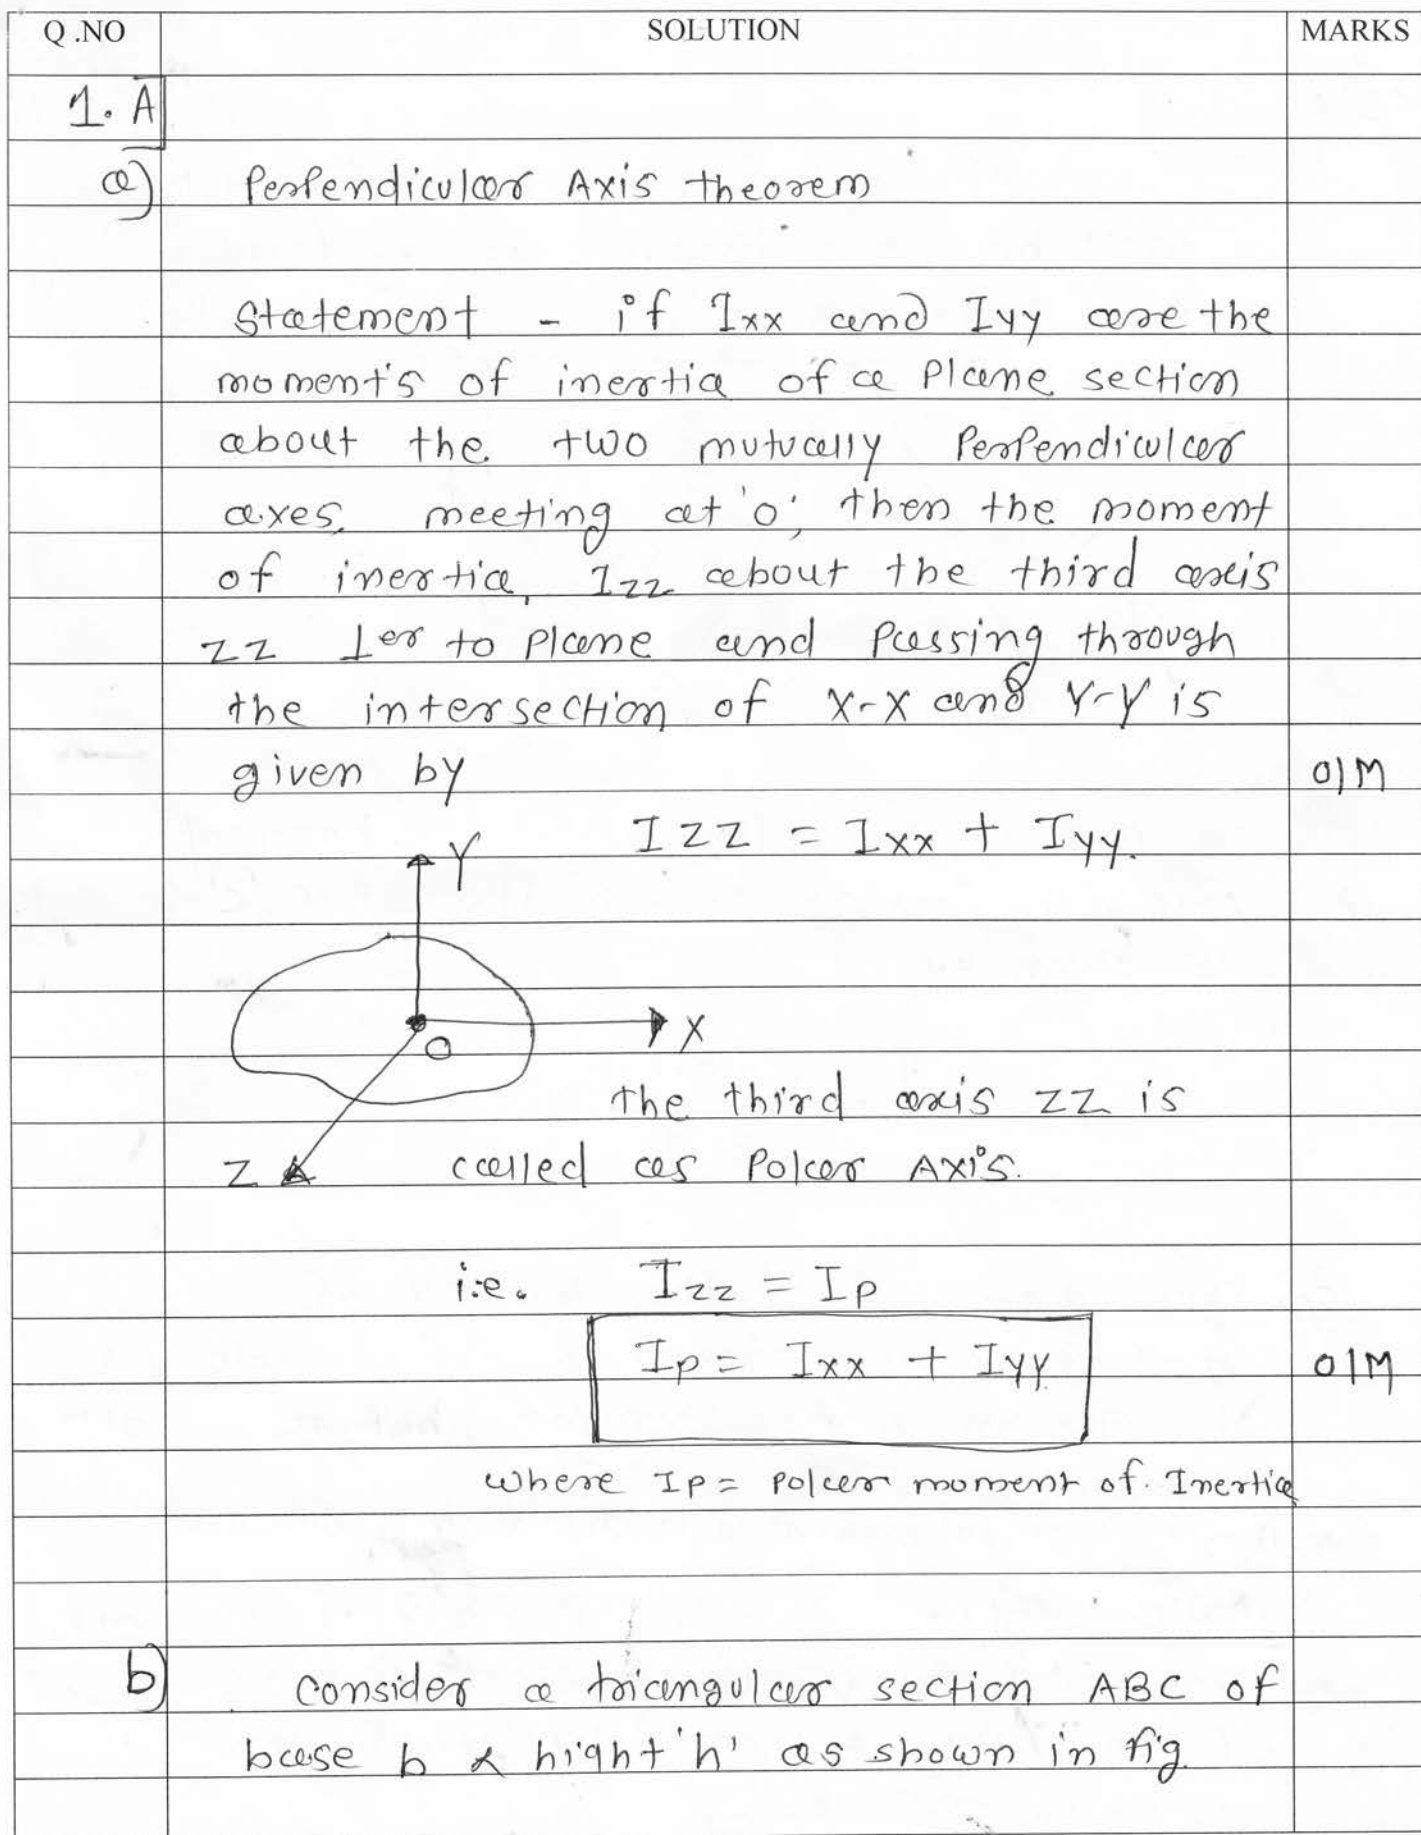 Q .NO SOLUTION MARKS
1. A
a) Perpendicular Axis theorem
Statement - if Ixx and Iyy are the
moment's of inertia of a Plane section
about the two mutually Perpendicular
axes, meeting at 'o', then the moment
of inertia, Izz about the third axis
zz ⊥er to Plane and Passing through
the intersection of X-X and Y-Y is
given by 01M
IZZ = Ixx + Iyy.
Y
X
O
the third axis zz is
Z called as Polar Axis.
i.e. Izz = Ip
Ip = Ixx + Iyy 01M
where Ip = Polar moment of. Inertia
b) Consider a triangular section ABC of
base b & hight 'h' as shown in fig.